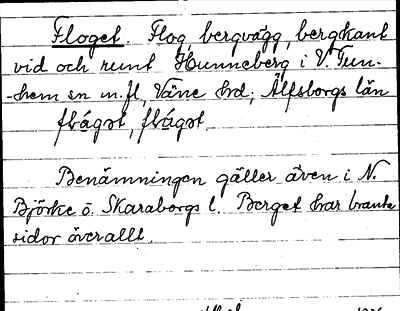 Floget. Flog, bergvägg, bergkant
vid och runt Hunneberg i V. Tun-
-hem sn m. fl., Väne hd; Älfsborgs län
flágət, flágət.
Benämningen gäller även i N.
Björke o. Skaraborgs l. Berget har branta
sidor överallt.